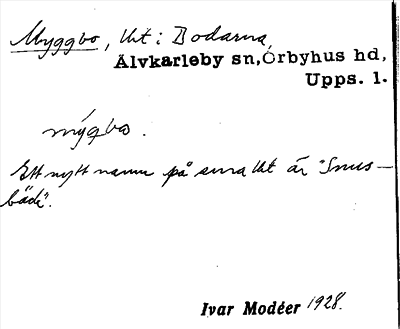 Myggbo, lht i Bodarna,
Älvkarleby sn, Örbyhus hd,
Upps. l.
mýgbo.
Ett nytt namn på smra lht är "Snus-
bäck".
Ivar Modéer 1928.